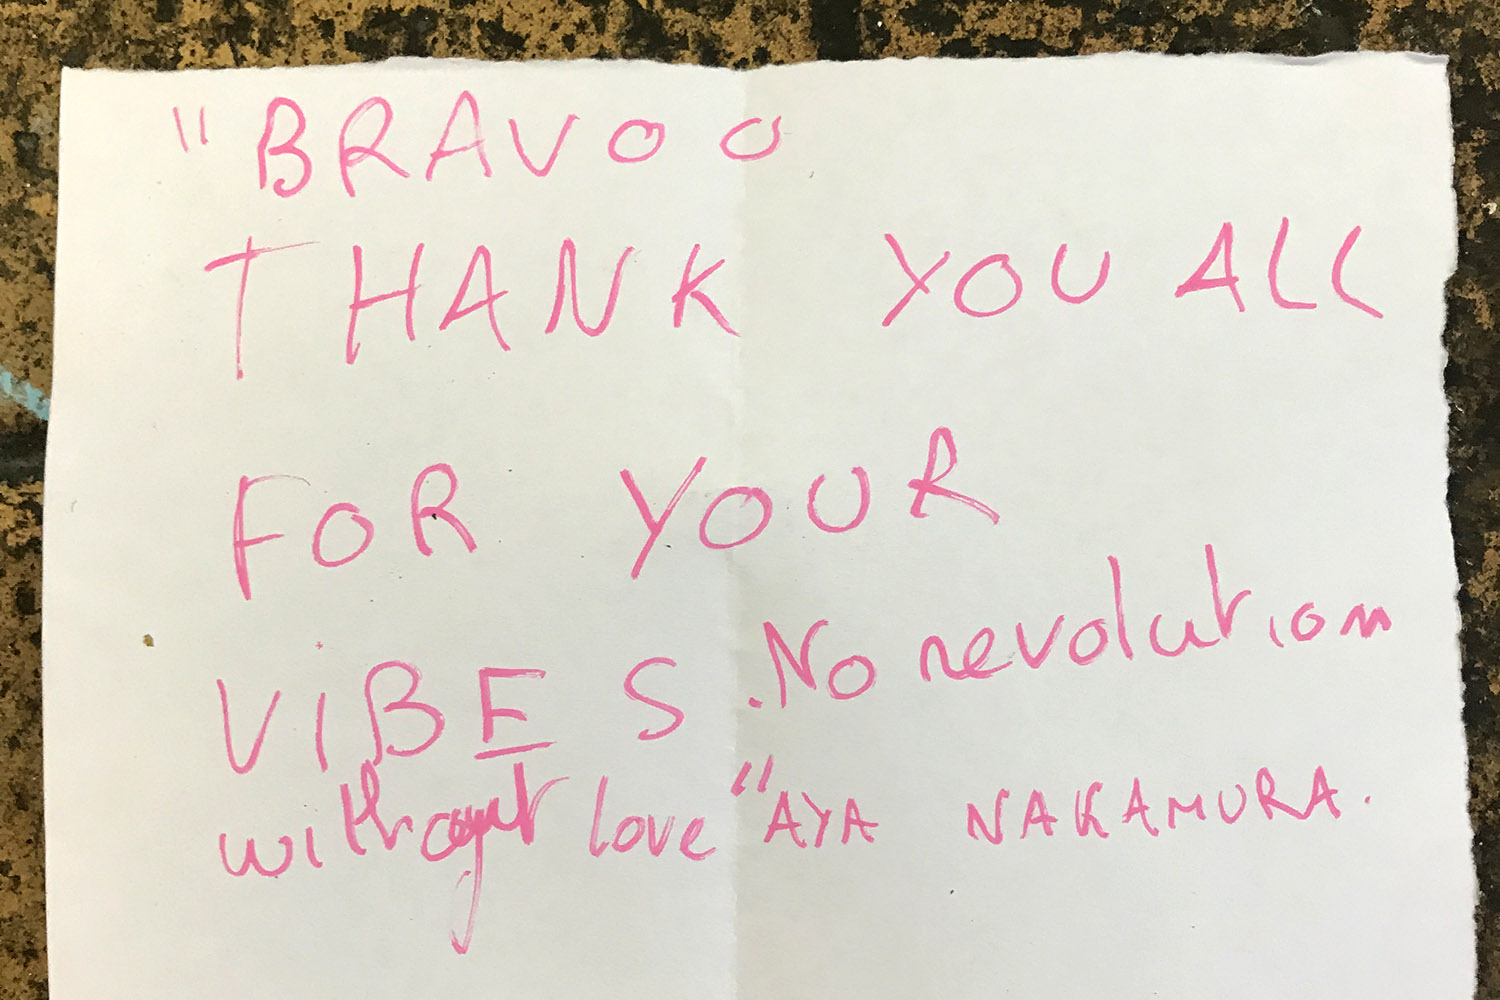 "BRAVOO
THANK YOU ALL
FOR YOUR
ViBES. No revolution
without love" AYA NAKAMURA.